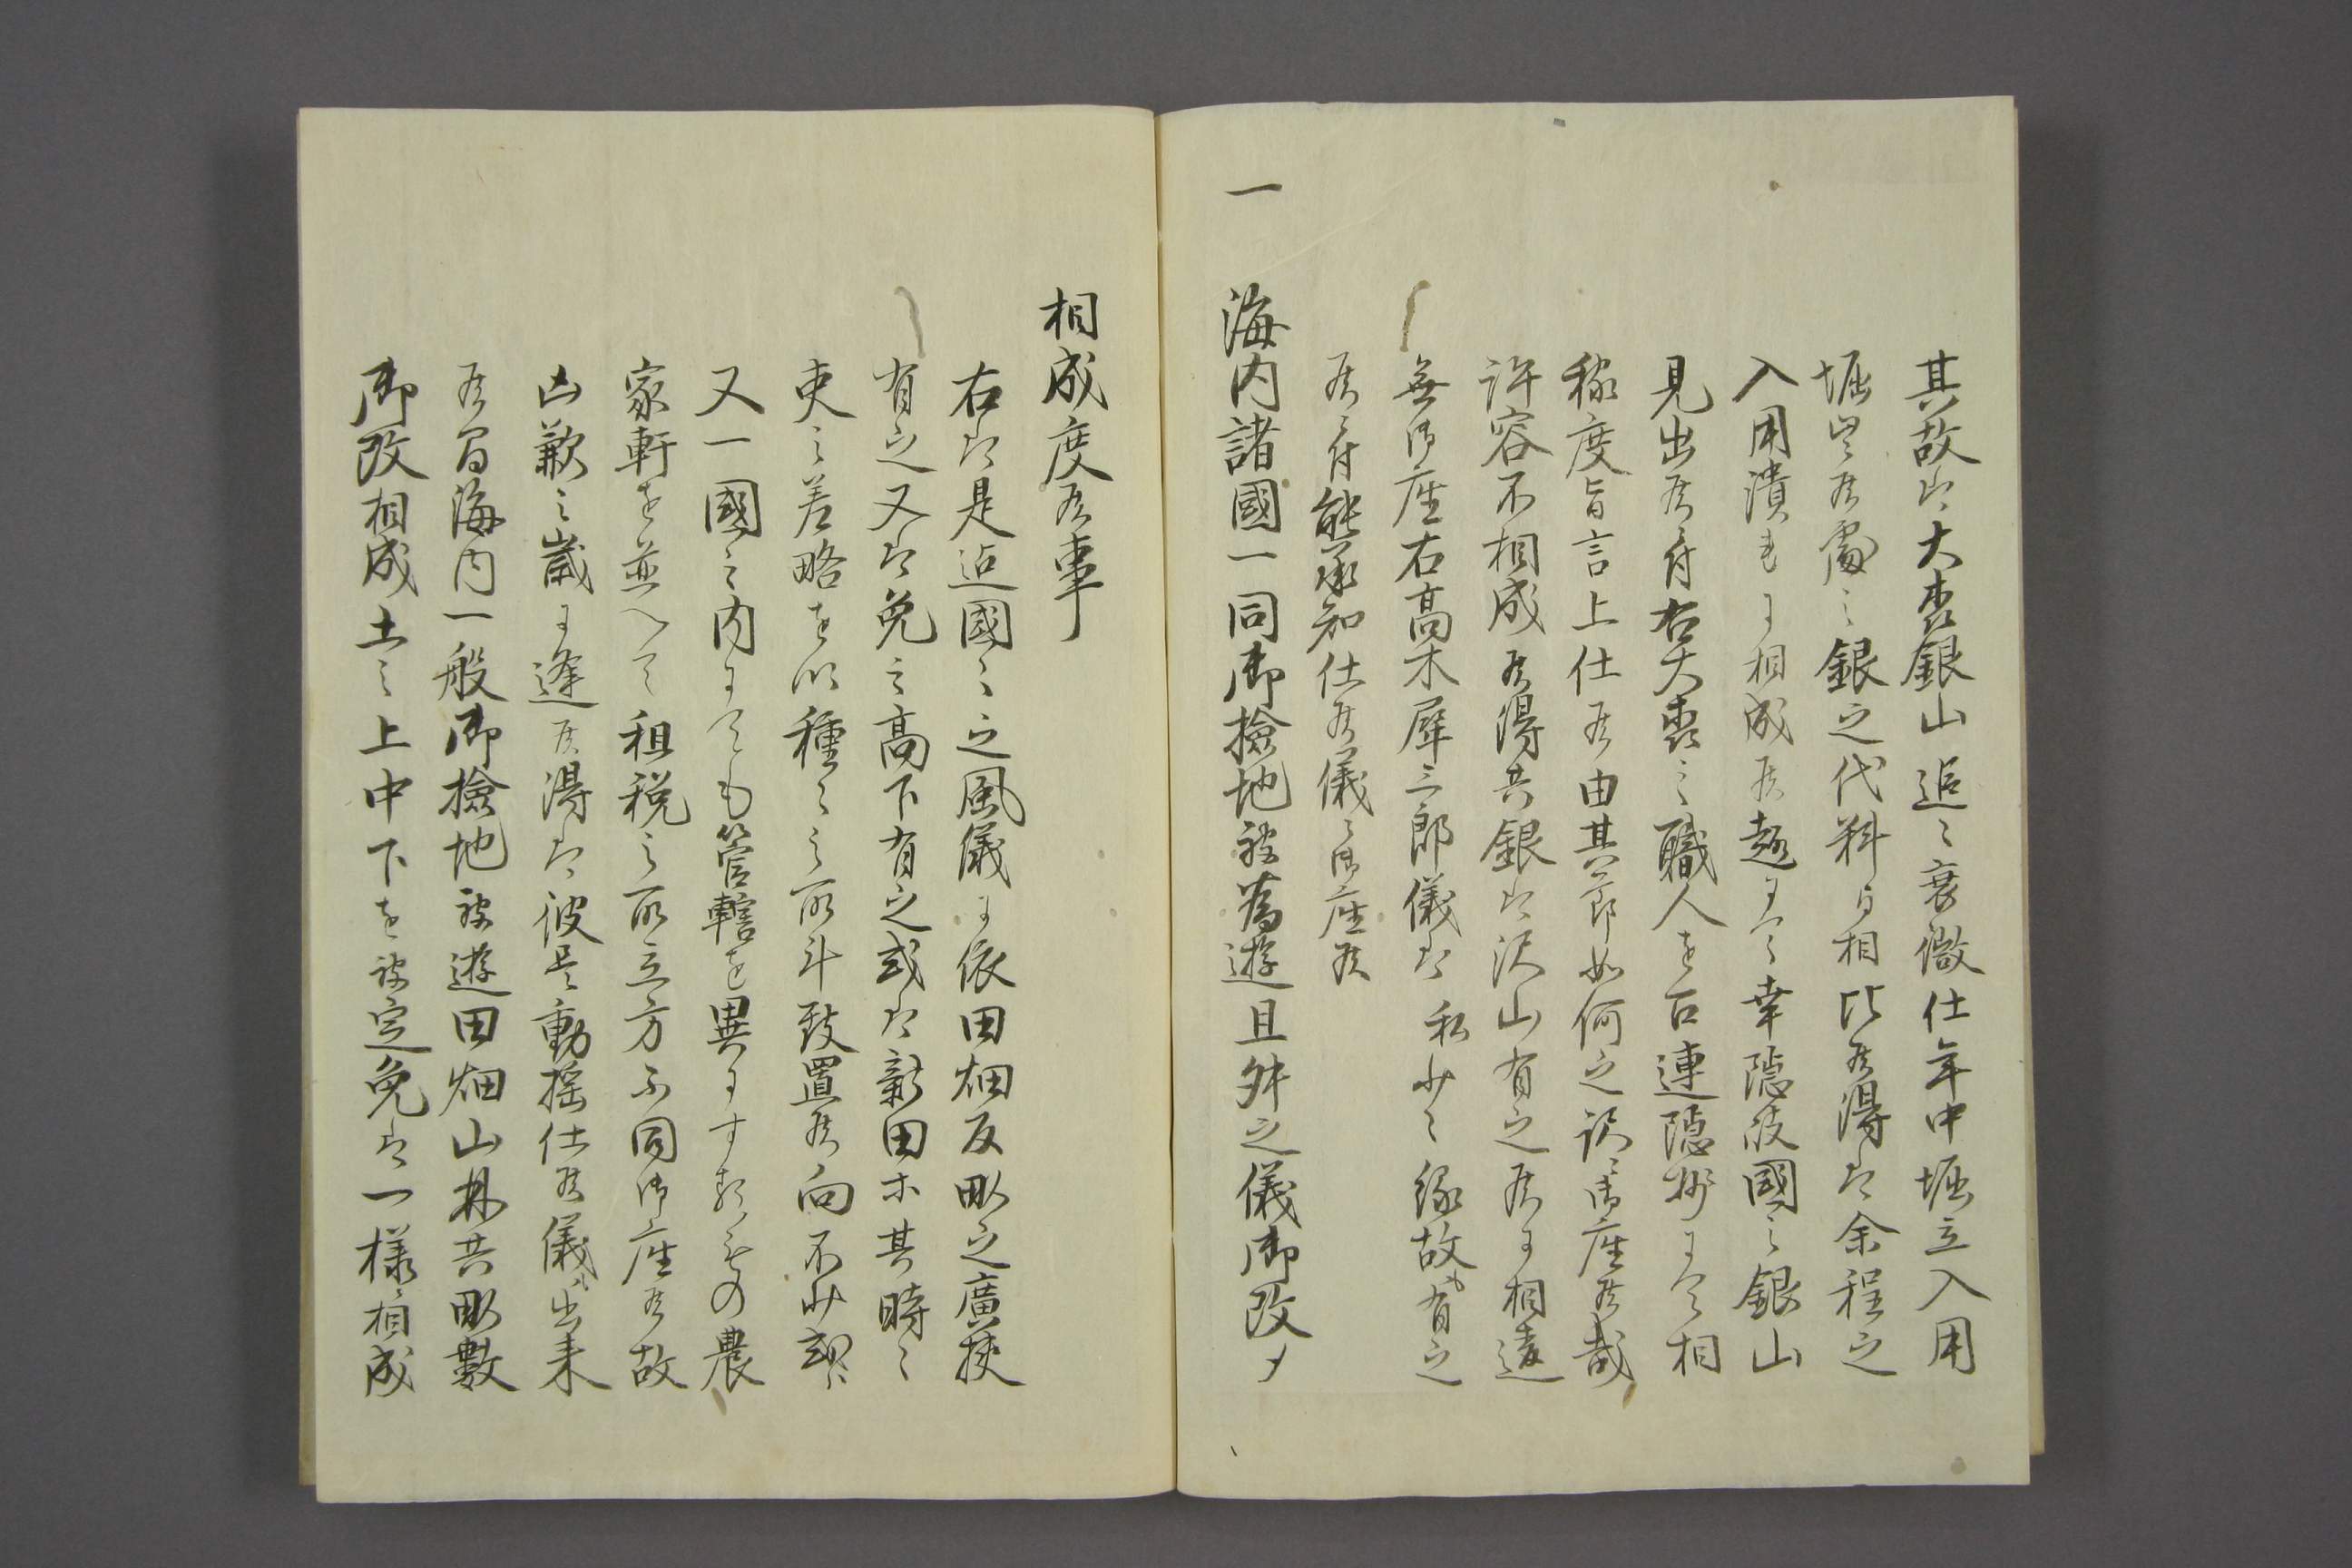 其故ハ大森銀山追々衰微仕年中堀立入用
堀出候處之銀之代料与相比候得ハ余程之
入用潰れニ相成候趣ニ而幸隠岐國之銀山
見出候ニ付右大森之職人を召連隠州ニ而相
稼度旨言上仕候由其節如何之訳ニ御座候哉
許容不相成候得共銀ハ沢山有之候ニ相違
無御座右高木犀三郎儀ハ私少々縁故も有之
候ニ付能承知仕候儀ニ御座候
一 海内諸國一同御撿地被為遊且舛之儀御改メ
相成度候事
右ハ是迠國々之風儀ニ依田畑反畝之廣狹
有之又ハ免之高下有之或ハ新田ホ其時々
吏之差略を以種々之所斗致置候向不少殊ニ
又一國之内ニても管轄を異ニする時ハの農
家軒を並へて租税之所立方不同御座候故
凶歉之歳ニ逢候得ハ彼是動揺仕候儀も出来
候間海内一般御撿地被遊田畑山林共畝數
御改相成土之上中下を被定免ハ一様ニ相成